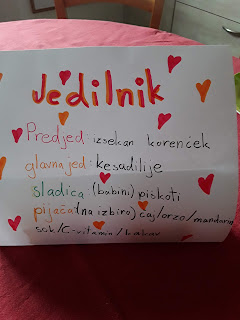 Jedilnik
Predjed: izsekan korenček
glavna jed: kesadilije
sladica: (babini) piškoti
pijača: (na izbiro) čaj/orzo/mandarin
sok/C-vitamin/kakav